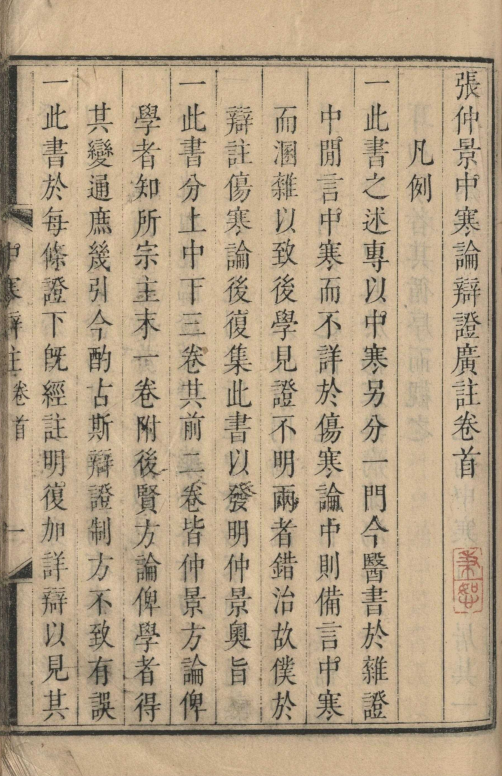 張仲景中寒論辯證廣註卷首
凡例
一此書之述專以中寒另分一門今醫書於雜證
中閒言中寒而不詳於傷寒論中則備言中寒
而溷雜以致後學見證不明兩者錯治故僕於
辯註傷寒論後復集此書以發明仲景奧旨
一此書分上中下三卷其前二卷皆仲景方論俾
學者知所宗主末一卷附後賢方論俾學者得
其變通庶幾引今酌占斯辯證制方不致有誤
一此書於每條證下旣經註明復加詳辯以見其
中寒辯註 卷首 一